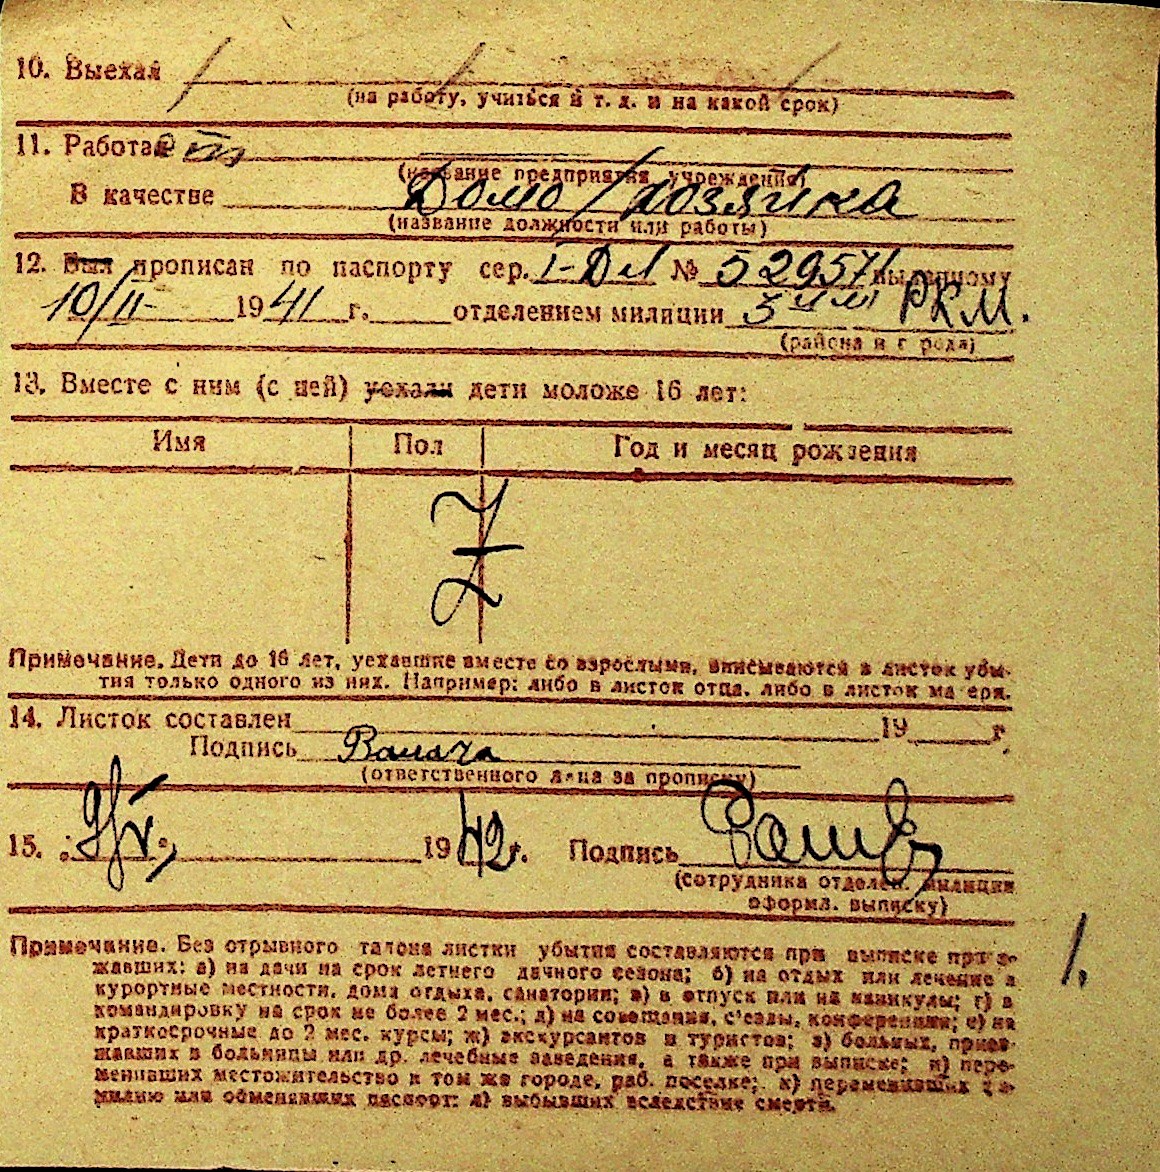 10. Выехал
(на работу, учиться и т. д. и на какой срок)
11. Работает
(название предприятия, учреждения)
В качестве Домо/хозяйка
(название должности или работы)
12. Был прописан по паспорту сер. I-Del № 529571 выданному
10/II- 1941 г. отделением милиции 3 РКМ.
(района и города)
13. Вместе с ним (с ней) уехали дети моложе 16 лет:
Имя Пол Год и месяц рождения
Z
Примечание. Дети до 16 лет, уехавшие вместе со взрослыми, вписываются в листок убы-
тия только одного из них. Например: либо в листок отца, либо в листок матери.
14. Листок составлен 19 г.
Подпись
(ответственного лица за прописку)
15. 1942г. Подпись
(сотрудника отделен. милиции
оформл. выписку)
Примечание. Без отрывного талона листки убытия составляются при выписке приез-
жавших: а) на дачи на срок летнего дачного сезона; б) на отдых или лечение в
курортные местности, дома отдыха, санатории; в) в отпуск или на каникулы; г) в
командировку на срок не более 2 мес.; д) на совещания, с'езды, конференции; е) на
краткосрочные до 2 мес. курсы; ж) экскурсантов и туристов; з) больных, приез-
жавших в больницы или др. лечебные заведения, а также при выписке; и) пере-
менивших местожительство в том же городе, раб. поселке; к) переменивших фа-
милию или обменявших паспорт; л) выбывших вследствие смерти.
1.